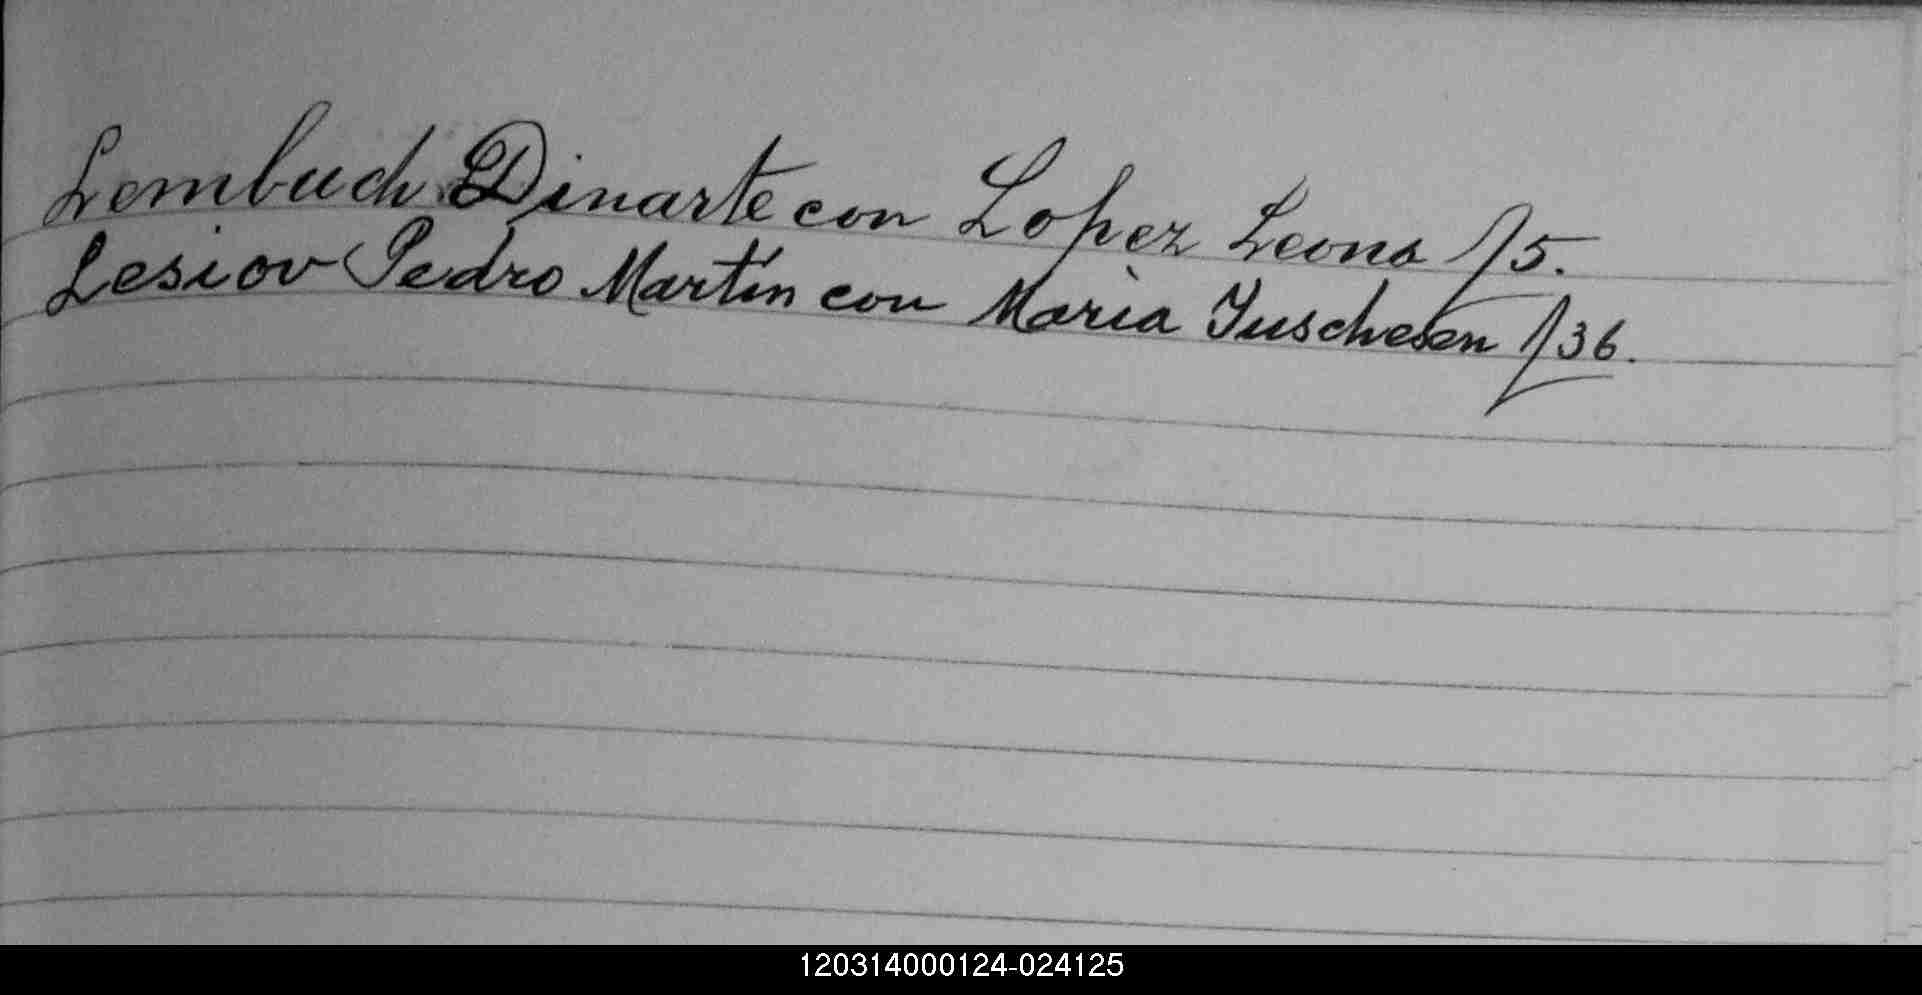 Lembuch Dinarte con Lopez Leona f/5.
Lesiov Pedro Martín con Maria Juschesen f/36.
120314000124-024125